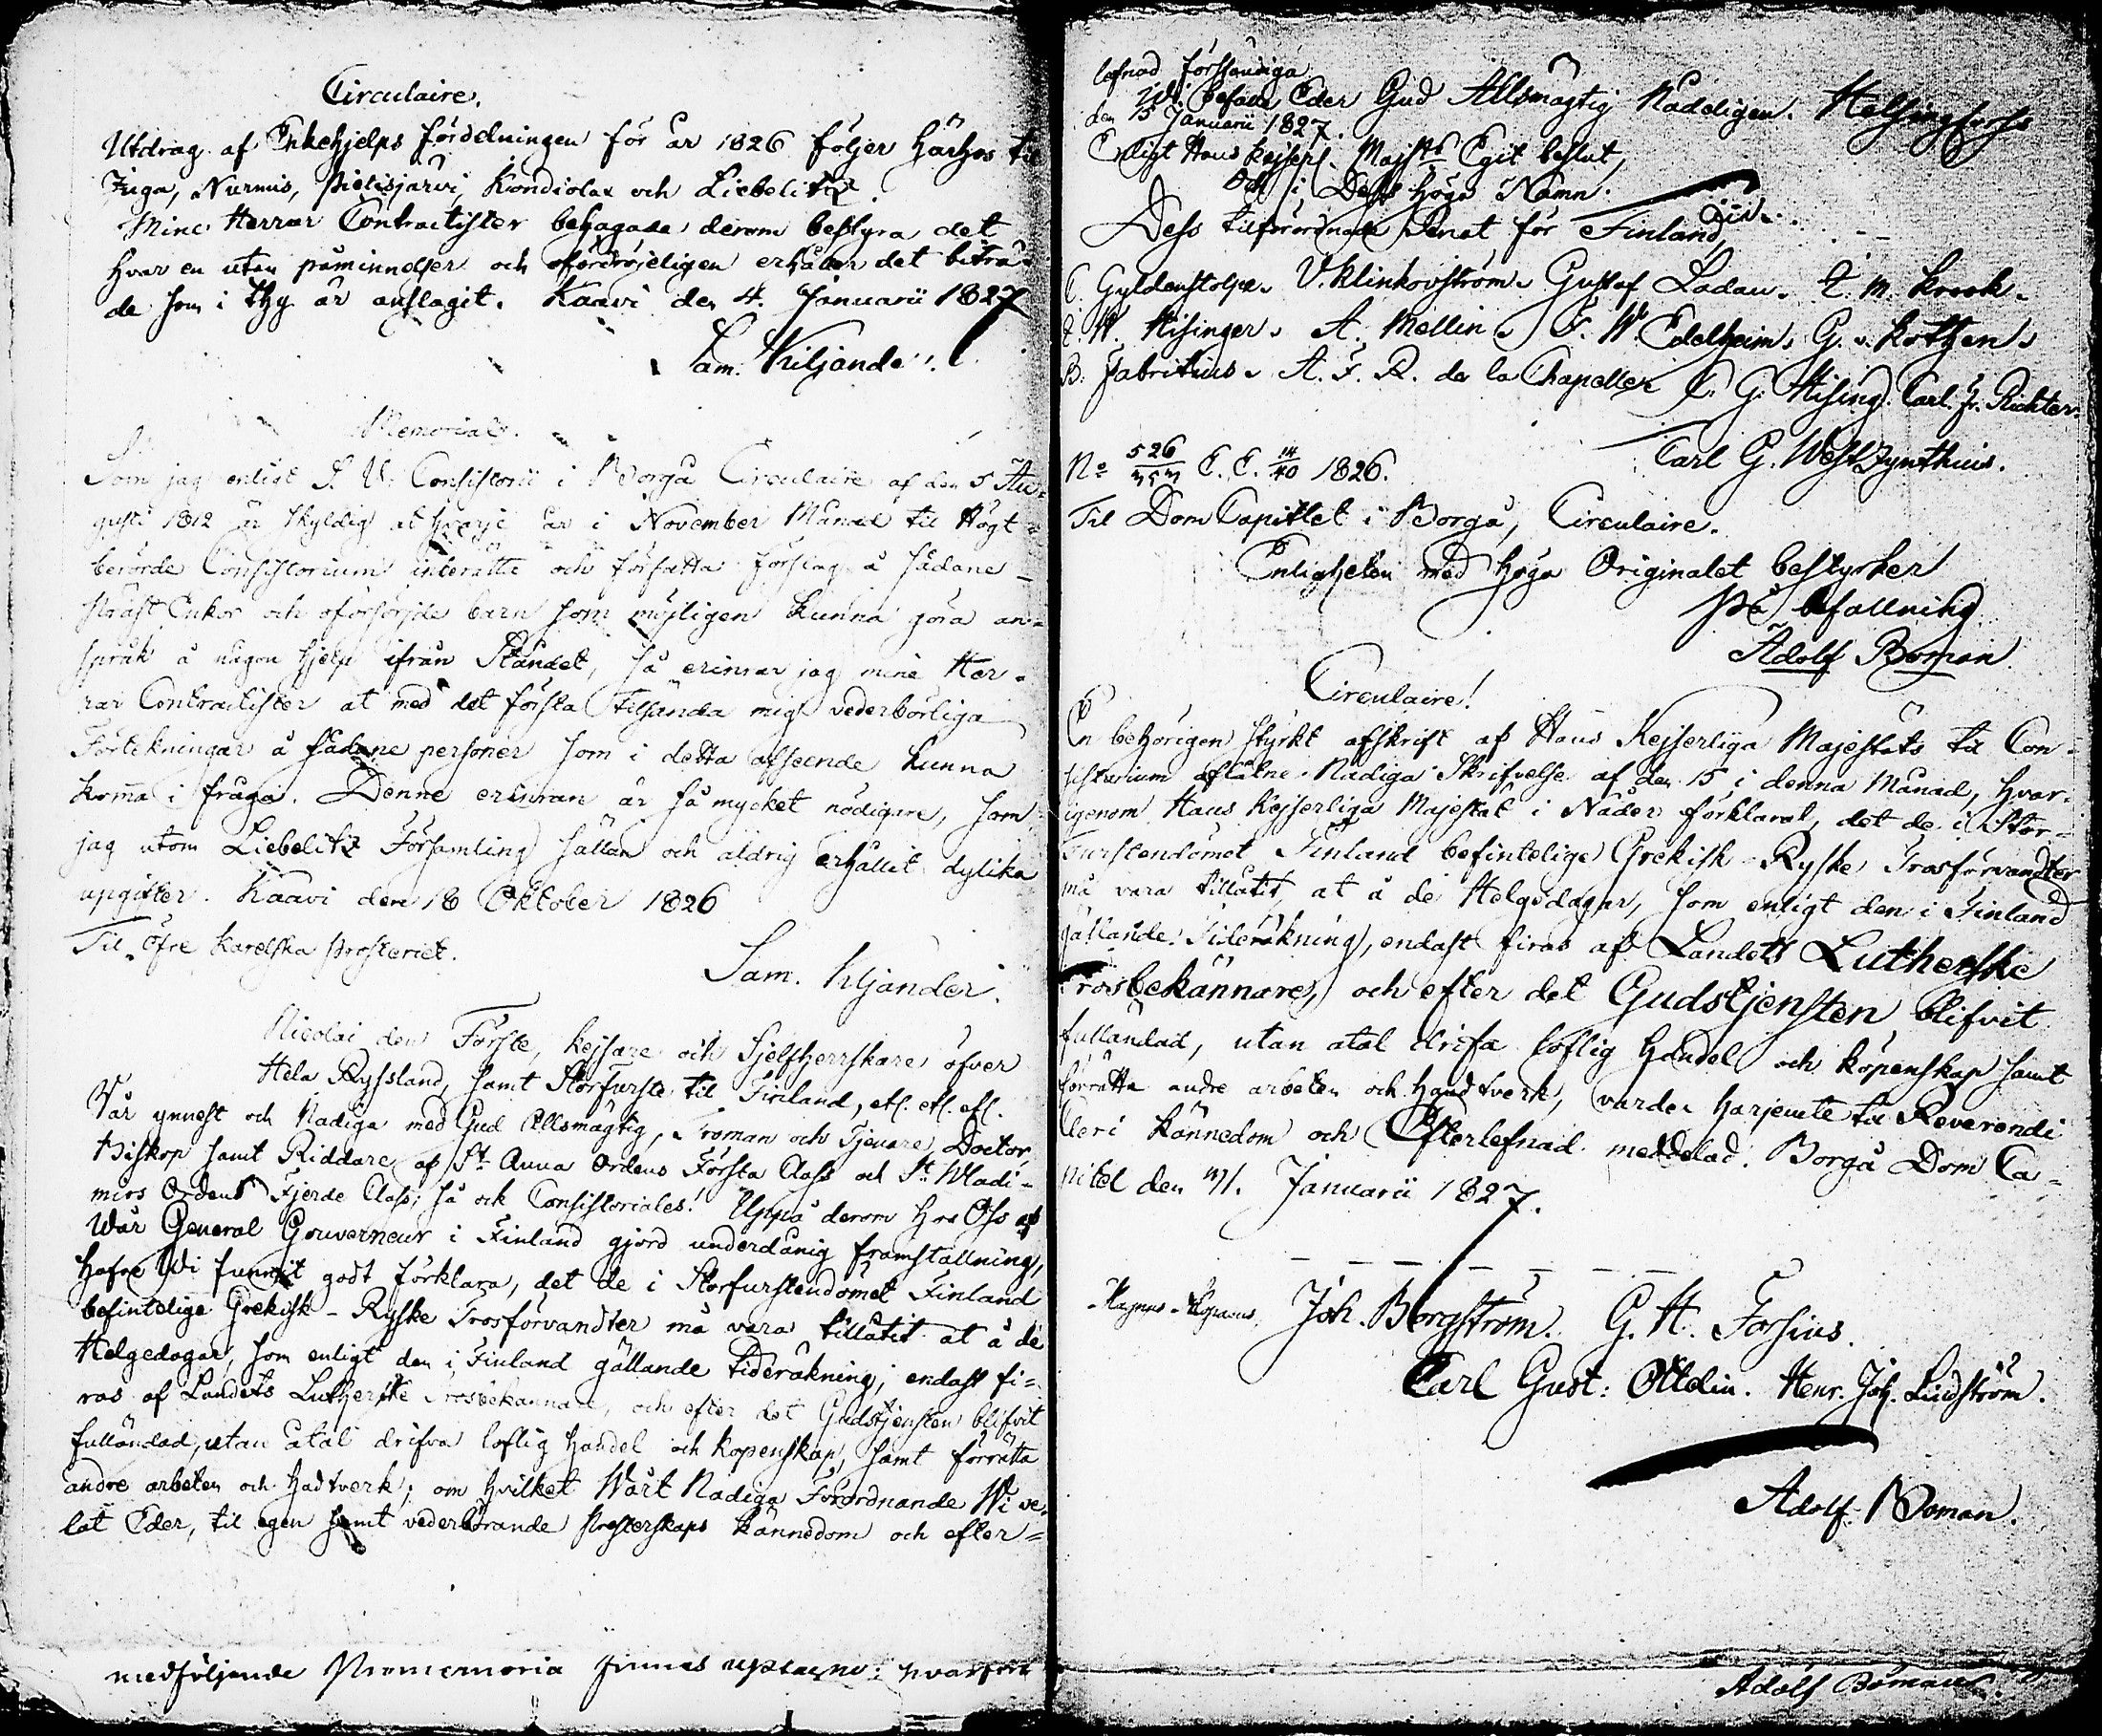 Circulaire.
Utdrag af Enkehjelps fördelningen för år 1826 följer härhos til
Juga, Nurmis, Pielisjärvi, Kondiolax och Liebelitz.
Mine Herrar Contractister behagade derom bestyra det
hvar en utan påminnelser och ofördröjeligen erhåller det biträ-
de som i thy är anslagit. Kaavi den 4. Januarii 1827
Sam. Kiljander.
Memorial.
Som jag enligt S. V. Consistorii i Borgå Circulaire af den 5 Au-
gusti 1812 är skyldig at hvarje år i November Månad til Högt-
berörde Consistorium inberätte och författa förslag å sådane
Präst Enkor och oförsörjde barn som möjligen kunna göra an-
språk å någon hjelp ifrån Ståndet, så erinrar jag mine Her-
rar Contractister at med det första tilsända mig vederbörliga
Förtekningar å sådane personer som i detta afseende kunna
kom̄a i fråga. Denne erinran är så mycket nödigare, som
jag utom Liebelitz Församling sällan och aldrig erhållit dylika
upgifter. Kaavi den 18 Oktober 1826
Til Öfre Karelska Prosteriet.
Sam. Kiljander.
Nicolai den Förste, Kejsare och Sjelfherrskare öfver
Hela Ryssland, samt Storfurste til Finland, etc. etc. etc.
Vår ynnest och Nådiga med Gud Allsmägtig, Troman och Tjenare, Doctor,
Biskop samt Riddare af St Anna Ordens Första Class och St Wladi-
mirs Ordens Fjerde Class; så ock Consistoriales! Uppå derom hos Oss af
Wår General Gouverneur i Finland gjord underdånig framställning,
hafve Wi funnit godt förklara, det de i Storfurstendömet Finland
befintelige Grekisk-Ryske Trosförvandter må vara tillåtit at å de
Helgedagar, som enligt den i Finland gällande tideräkning, endast fi-
ras af Landets Lutherske Trosbekännare, och efter det Gudstjensten blifvit
fulländad, utan åtal drifva loflig handel och köpenskap, samt förrätta
andre arbeten och hadtverk; om hvilket Wårt Nådiga Förordnande Wi ve-
lat Eder, til egen samt vederbörande Presterskaps kännedom och efter-
medföljende Promemoria finnas uptagne: hvarföre
lefnad förständiga.
Wi befalle Eder Gud Allsmägtig Nådeligen. Helsingfors
den 15 Januarii 1827.
Enligt Hans Kejserl. Majsts Egit beslut,
Och i Dess Höga Namn.
Dess tilförordnade Senat för Finland
C. Gyldenstolpe. V. Klinkovström. Gustaf Ladau. C. M. Krook.
E. W. Hisinger. A. Mellin. F. W. Edelheim. G. v. Kothen.
B. Fabritius. A. F. R. de la Chapelle. C. G. Hising. Carl Fr. Richter.
Carl G. Westzynthius.
No 526 E. E. 14/40 1826.
Til Dom Capitlet i Borgå, Circulaire.
Enligheten med höga Originalet bestyrker
På befallning
Adolf Boman
Circulaire!
En behörigen styrkt afskrift af Hans Kejserliga Majestäts til Con-
sistorium aflåtne Nådiga Skrifvelse af den 15 i denna Månad, hvar-
igenom Hans Kejserliga Majestät i Nåder förklarat, det de i Stor-
Furstendömet Finland befintelige Grekisk-Ryske Trosförvandter
må vara tillåtit, at å de Helgedagar, som enligt den i Finland
gällande Tideräkning, endast firas af Landets Lutherske
Trosbekännare, och efter det Gudstjensten blifvit
fulländad, utan åtal drifa loflig handel och köpenskap samt
förrätta andre arbeten och handtverk, varder härjemte til Reverendi
Cleri kännedom och Efterlefnad meddelad. Borgå Dom Ca-
pitel den 31. Januarii 1827.
Magnus Alopaeus. Joh. Borgström. G. H. Forsius.
Carl Gust: Ottelin. Henr. Joh. Lindström.
Adolf Boman.
Adolf Boman.